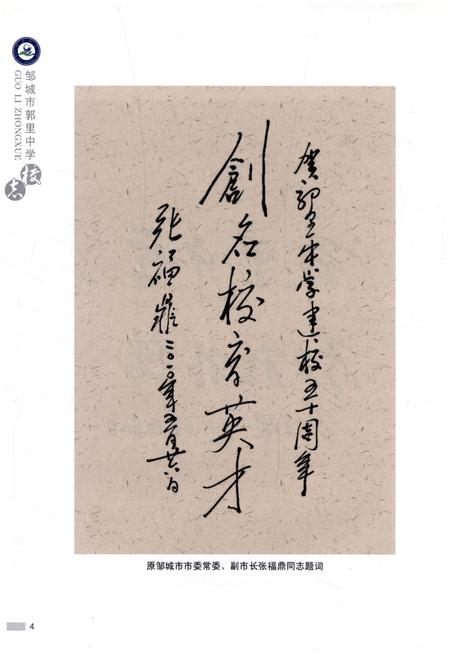 邹城市郭里中学
GUO LI ZHONGXUE
校志
贺郭里中学建校五十周年
創名校育英才
张福鼎
二〇一〇年五月廿六日
原邹城市市委常委、副市长张福鼎同志题词
4